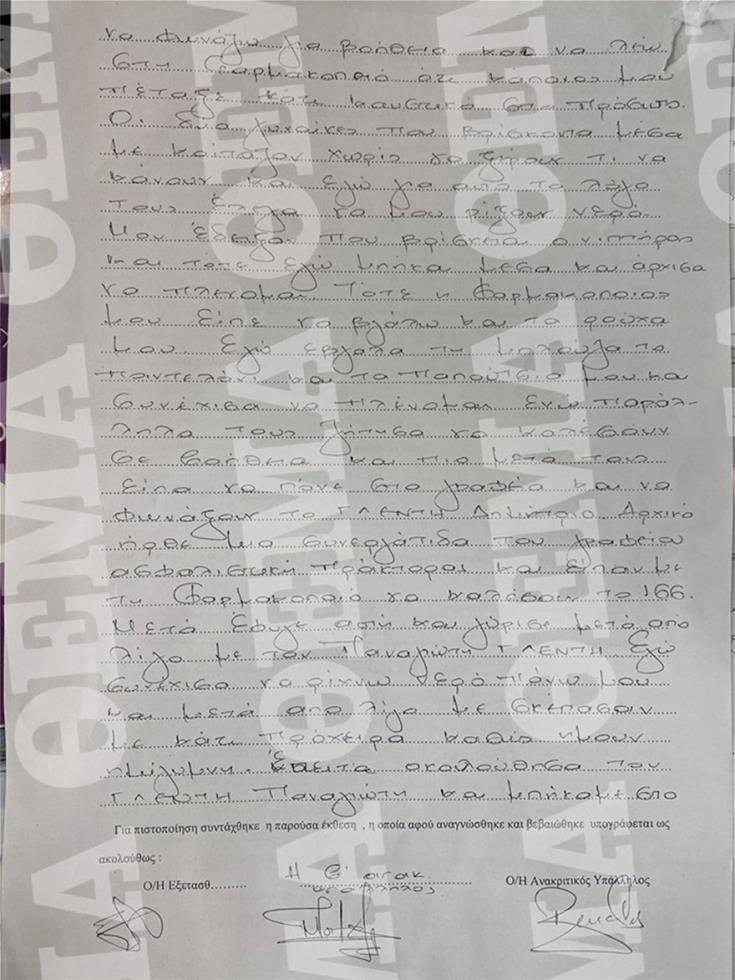 να φωνάζω για βοήθεια και να λέω
στη φαρμακοποιό ότι κάποιος μου
πέταξε κάτι καυστικό στο πρόσωπο.
Οι δυο γυναίκες που βρίσκοντα μέσα
με κοίταζαν χωρίς να ξέρουν τι να
κάνουν και εγώ για αυτό το λόγο
τους έλεγα να μου ρίξουν νερό.
Μου έδειξαν που βρίσκεται ο νιπτήρας
και τότε εγώ μπήκα μέσα και άρχισα
να πλένομαι. Τότε η φαρμακοποιός
μου είπε να βγάλω και τα ρούχα
μου. Εγώ έβγαλα τη μπλούζα το
παντελόνι και τα παπούτσια μου και
συνέχισα να πλένομαι ενώ παράλ-
ληλα τους ζήτησα να καλέσουν
σε βοήθεια και πιο μετά τους
είπα να πάνε στο γραφείο και να
φωνάξουν το ΓΛΕΝΤΗ Δημήτριο Αρχικά
ήρθε μια συνεργάτιδα του γραφείου
ασφαλιστική πράκτορας και είπαν με
τη φαρμακοποιό να καλέσουν το 166.
Μετά έφυγε αυτή και γύρισε μετά από
λίγο με τον Παναγιώτη ΓΛΕΝΤΗ Εγώ
συνέχισα να ρίχνω νερό πάνω μου
και μετά από λίγο με σκέπασαν
με κάτι πρόχειρα καθώς ήμουν
ημίγυμνη. Έπειτα ακολούθησα τον
ΓΛΕΝΤΗ Παναγιώτη και μπήκαμε στο
Για πιστοποίηση συντάχθηκε η παρούσα έκθεση , η οποία αφού αναγνώσθηκε και βεβαιώθηκε υπογράφεται ως
ακολούθως :
Ο/Η Εξετασθ......... Η Β' ανακ. υπάλληλος Ο/Η Ανακριτικός Υπάλληλος
ΘΕΜΑ